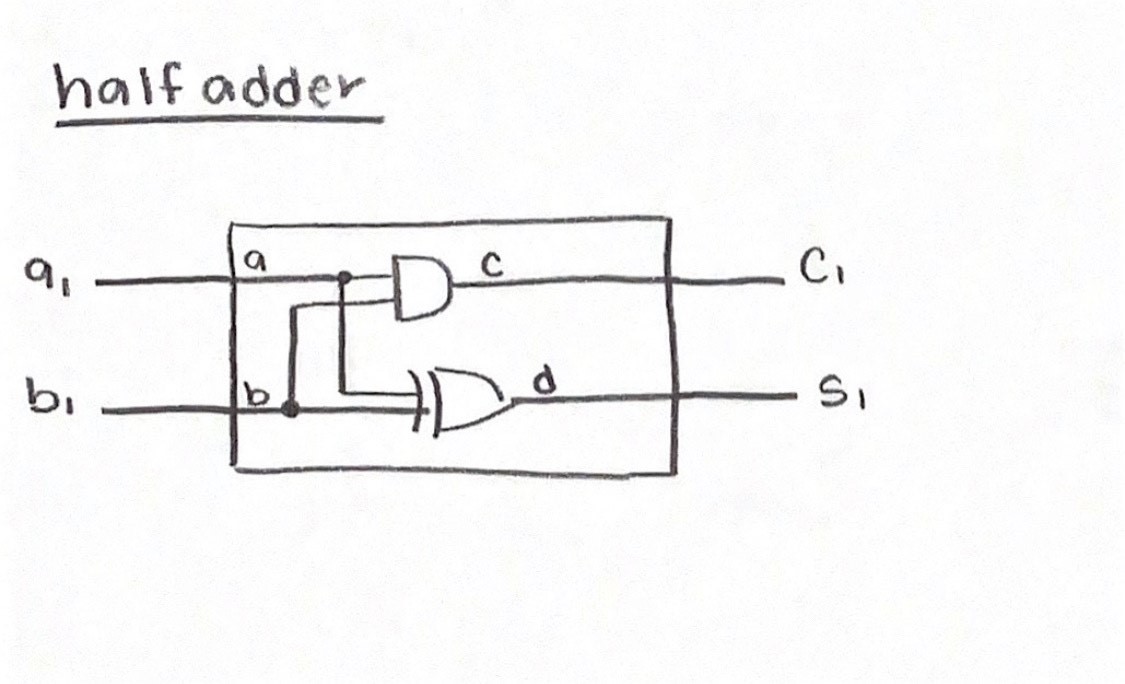 half adder
a₁ a c C₁
b₁ b d S₁